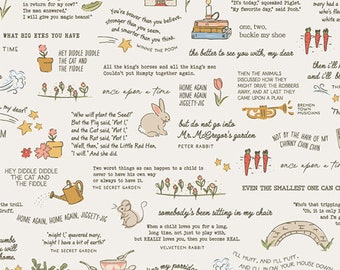 in return for my cow?"
The man answered,
"I will give you magic beans!"
You're braver than you believe,
stronger than you seem,
and smarter than you think.
WINNIE THE POOH
"It's today," squeaked Piglet.
"My favorite day," said Pooh.
one, two,
buckle my shoe
WHAT BIG EYES YOU HAVE
TIME
HEY DIDDLE DIDDLE
THE CAT AND
THE FIDDLE
the better to see you with, my dear
All the king's horses and all the king's men
Couldn't put Humpty together again.
THEN THE ANIMALS
DISCUSSED HOW THEY
MIGHT DRIVE THE ROBBERS
AWAY, AND AT LAST THEY
CAME UPON A PLAN.
BREMEN TOWN
MUSICIANS
HOME AGAIN
HOME AGAIN,
JIGGETY-JIG
once upon a time
"Who will plant the Seed?"
But the Pig said, "Not I,"
and the Cat said, "Not I,"
and the Rat said, "Not I."
"Well, then," said the Little Red Hen,
"I will." And she did.
but do not go into
Mr. McGregor's garden
PETER RABBIT
NOT BY THE HAIR OF MY
CHINNY CHIN CHIN
once upon a time
HEY DIDDLE DIDDLE
THE CAT AND
THE FIDDLE
Two worst things as can happen to a child is
never to have his own way
or always to have it.
THE SECRET GARDEN
EVEN THE SMALLEST ONE CAN
HOME AGAIN, HOME AGAIN, JIGGETY-JIG
somebody's been sitting in my chair
"might I," quavered mary,
"might I have a bit of earth?"
THE SECRET GARDEN
When a child loves you for a long,
long time, not just to play with,
but REALLY loves you, then you become REAL.
VELVETEEN RABBIT
"Who's that tripping
"Oh, it is only
and I'm
I'LL HUFF, AND I'LL PUFF,
AND I'LL BLOW YOUR HOUSE DOWN